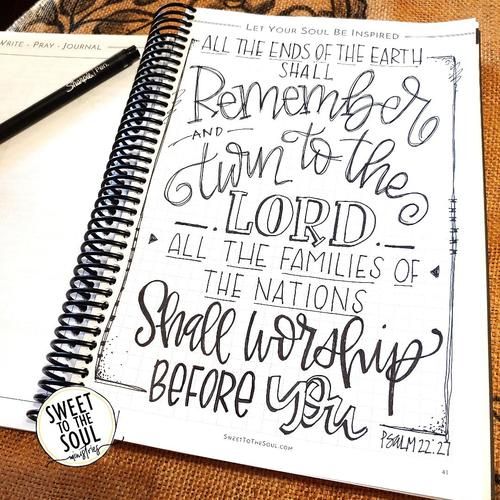 Write · Pray · Journal
Sharpie Pen
Let Your Soul Be Inspired
ALL THE ENDS OF THE EARTH
SHALL
Remember
AND
turn to the
LORD.
ALL THE FAMILIES OF
THE NATIONS
Shall worship
BEFORE you
PSALM 22:27
SweetToTheSoul.com
41
SWEET
TO THE
SOUL
ministries